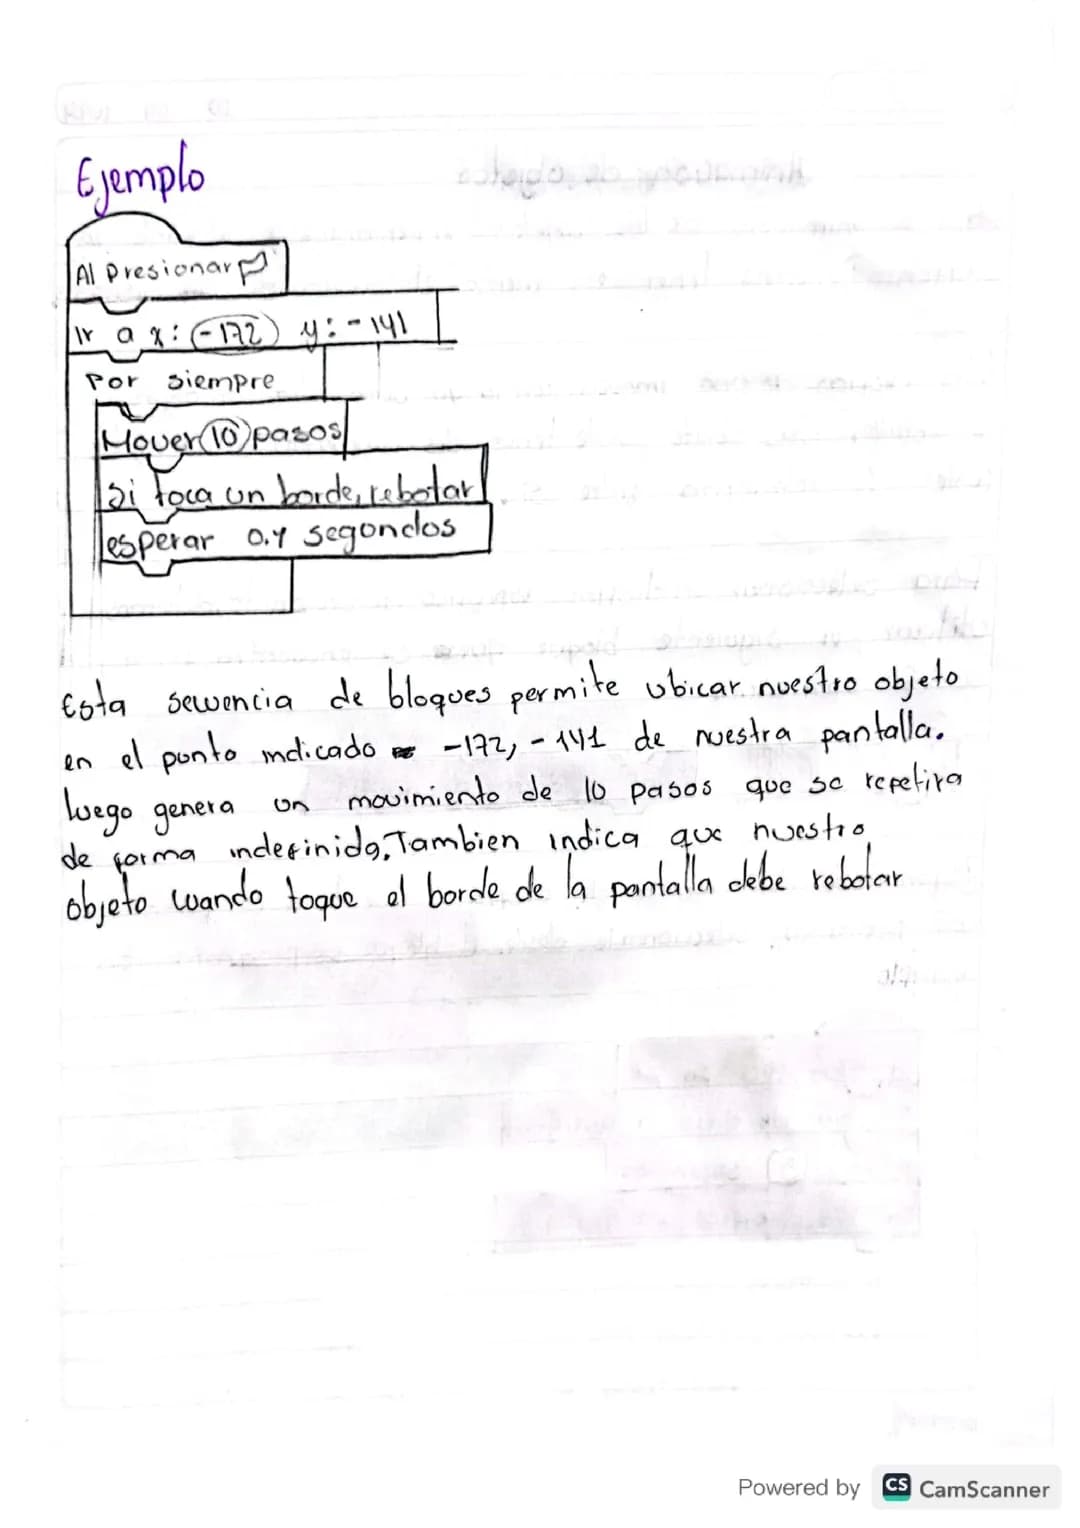 Ejemplo
Al Presionar
Ir a x: -172 y: -141
Por siempre
Mover 10 pasos
Si toca un borde, rebotar
esperar 0.4 segondos
Esta sewencia de bloques permite ubicar nuestro objeto
en el punto indicado -172, -141 de nuestra pantalla.
luego genera un movimiento de 10 pasos que se repetira
de forma indefinida. Tambien indica que nuestro
objeto cuando toque el borde de la pantalla debe rebotar
Powered by CS CamScanner